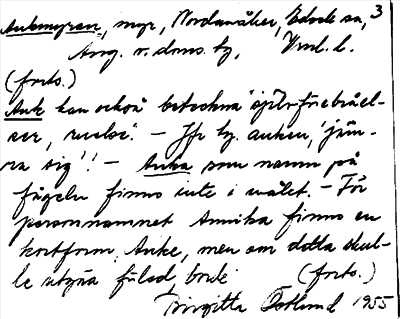 Ankmyran, myr, Nordanåker, Edsele sn, 3
Ång. v. doms. hg, Vrml. l.
(forts.)
Ank kan också beteckna 'självförebråel-
ser, ruelse'. – Jfr ty. anken, 'jäm-
ra sig'! – Anka som namn på
fågeln finns inte i målet. – För
personnamnet Annika finns en
kortform, Anke, men om detta skul-
le utgöra förled, borde (forts.)
Birgitta Östlund 1955